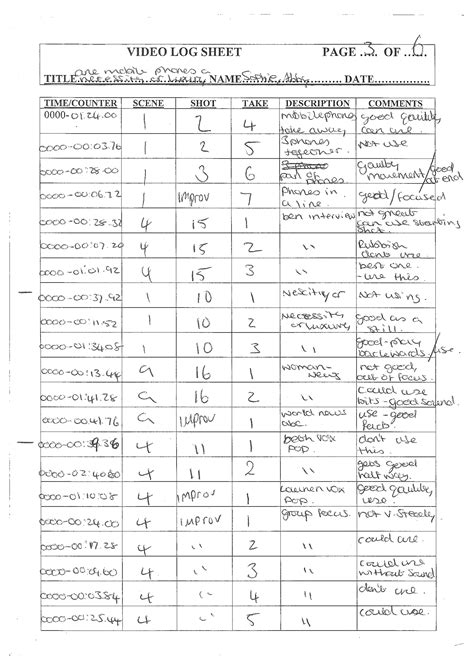 VIDEO LOG SHEET PAGE 3 OF 6
are mobile phones a
TITLE necessity or luxury NAME Sophie, Abby DATE
TIME/COUNTER SCENE SHOT TAKE DESCRIPTION COMMENTS
0000-01:24.00 1 2 4 mobile phones take away good quality can use
0000-00:03.76 1 2 5 3 phones together not use
0000-00:28.00 1 3 6 part of phones quality movement/good at end
0000-00:06.72 1 improv 7 phones in a line. good/focused
0000-00:28.32 4 15 1 ben interview not great can use starting shot.
0000-00:07.20 4 15 2 " Rubbish dont use
0000-01:01.92 4 15 3 " best one - use this.
0000-00:37.92 1 10 1 not using.
0000-00:11.52 1 10 2 necessity or luxury good as a still.
0000-01:3408 1 10 3 " good-play backwards/use.
0000-00:13.44 9 16 1 woman-news not good, out of focus.
0000-01:41.28 9 16 2 " could use bits-good sound.
0000-00:41.76 9 improv 1 world news abc. use-good
0000-00:39.36 4 11 1 beth vox pop. dont use this.
0000-02:4080 4 11 2 " gets good half way.
0000-01:10:08 4 improv 1 lauren vox pop. good quality, use.
0000-00:24.00 4 improv 1 group focus. not v. steady
0000-00:17.28 4 " 2 " could use.
4 " 3 " could use without sound
0000-00:0384 4 " 4 " dont use.
0000-00:25.44 4 " 5 " could use.